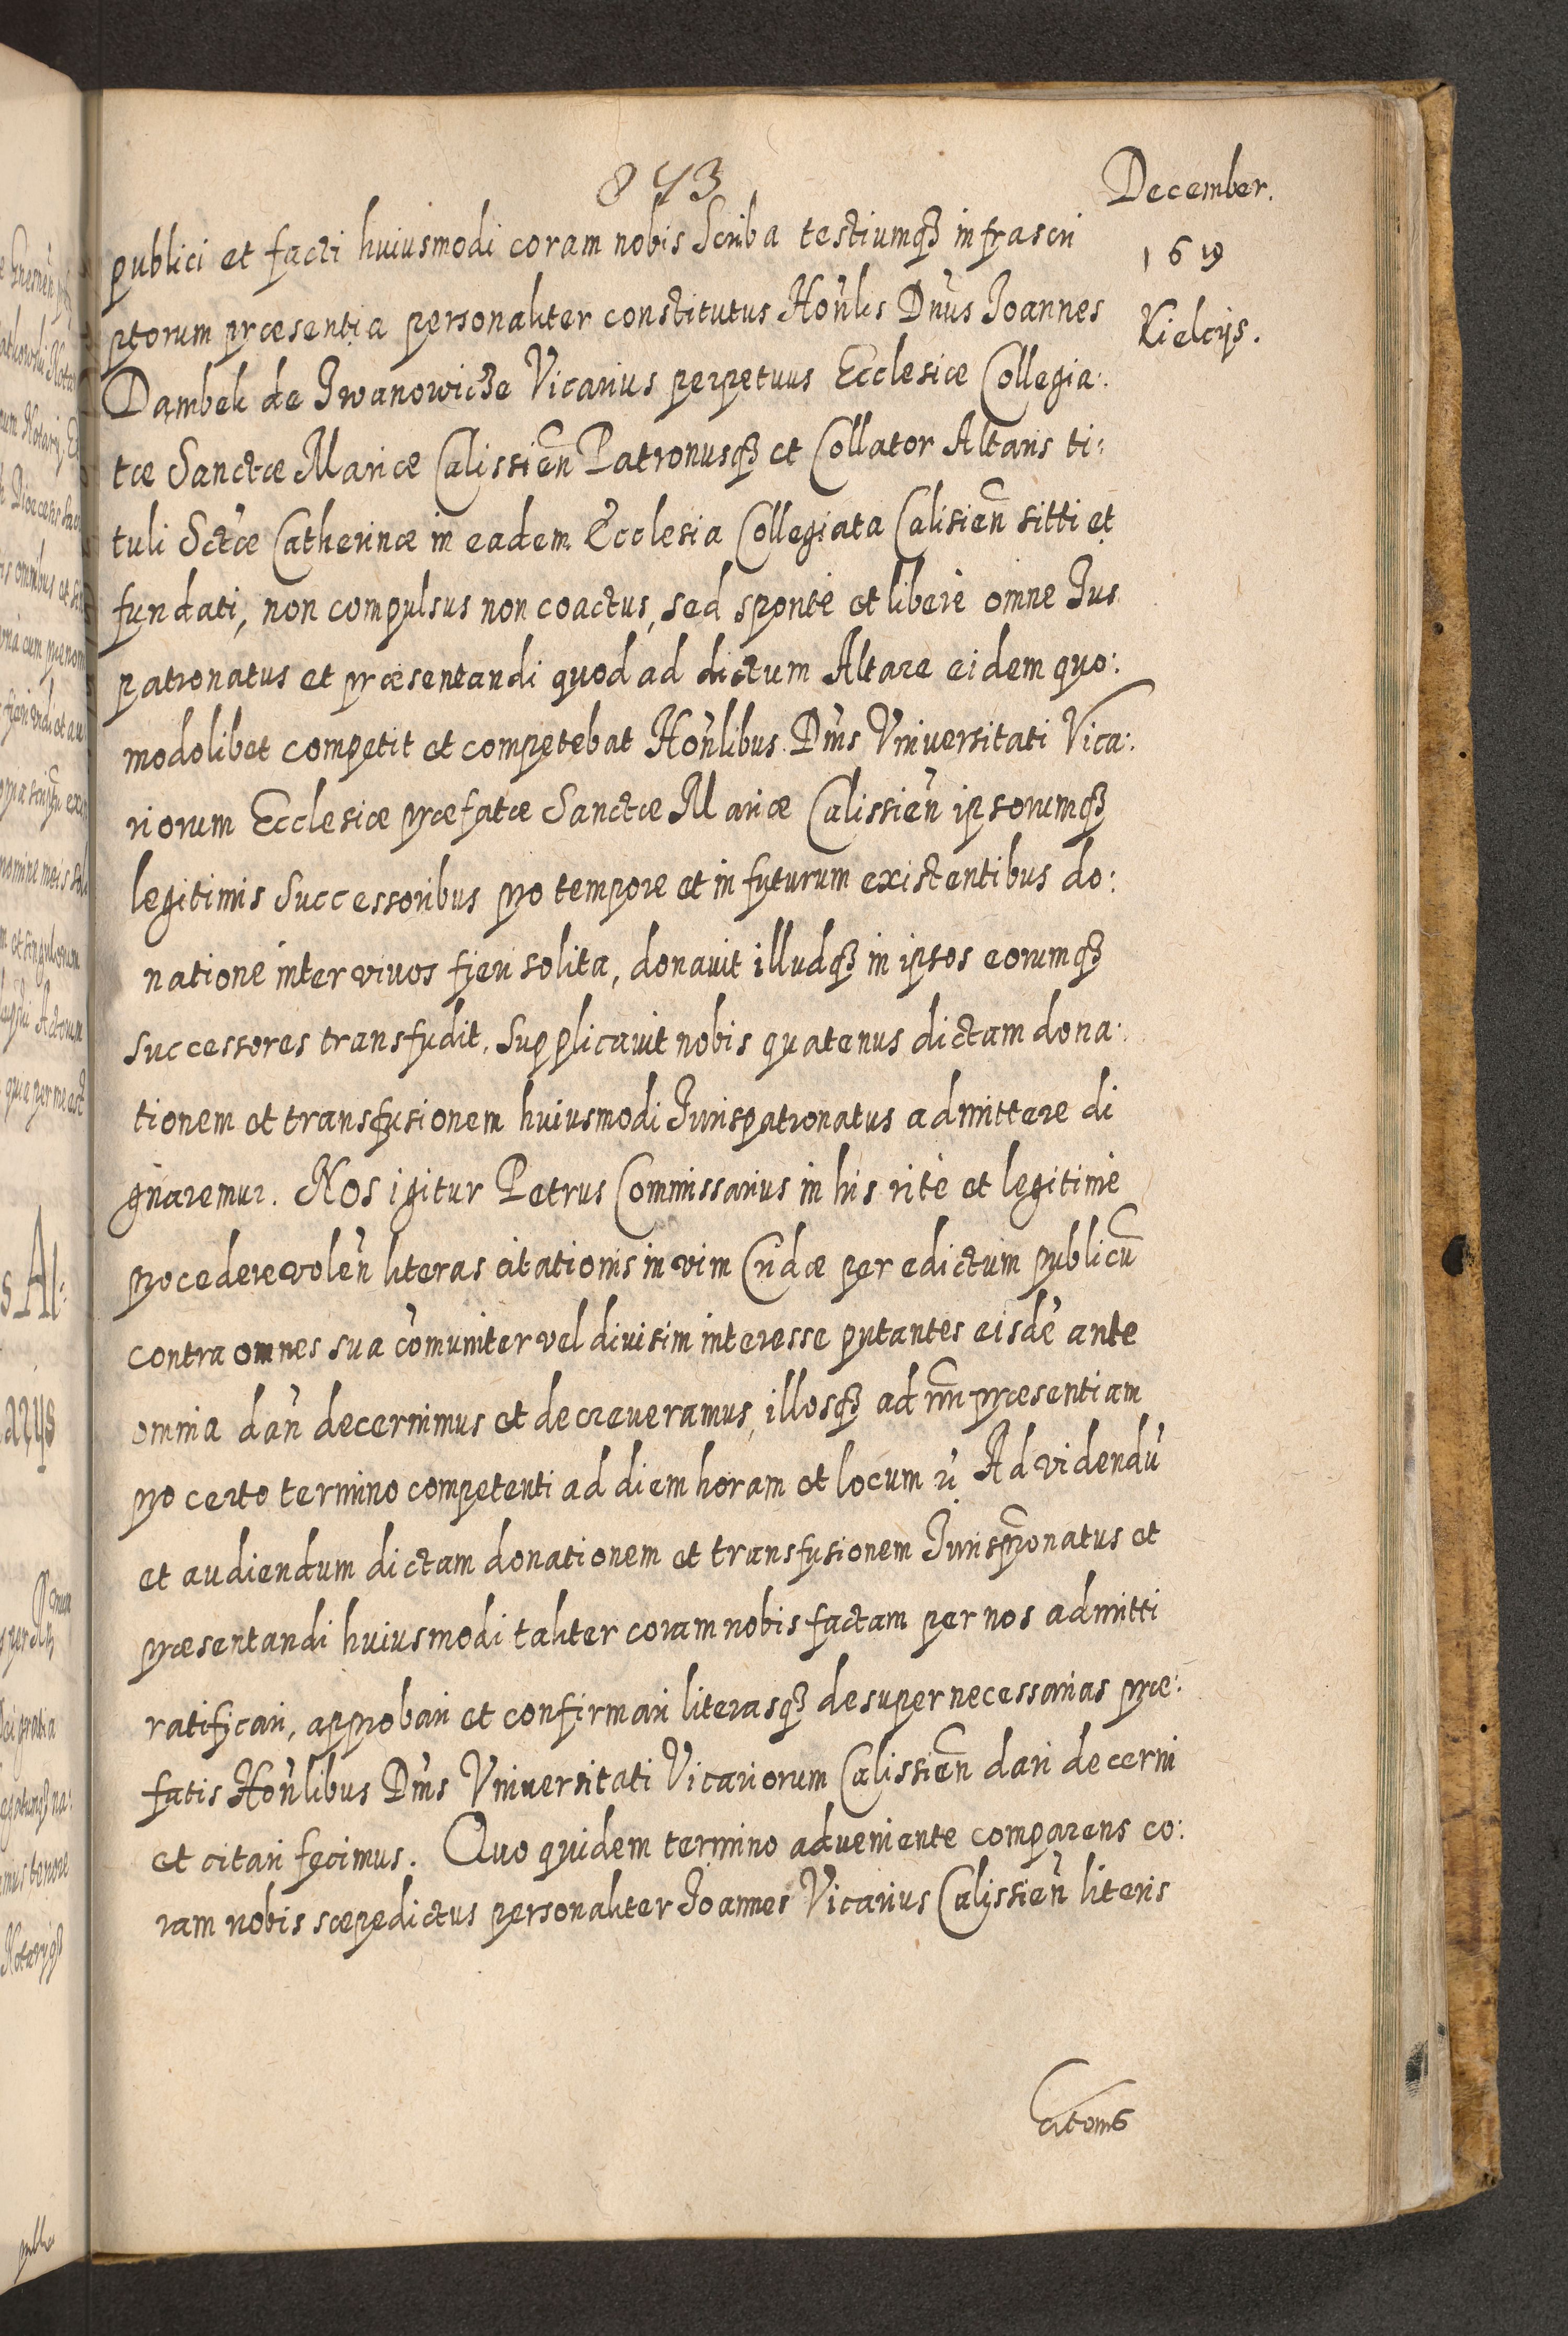 873
December.
1619
Kielcijs.
publici et facti huiusmodi coram nobis Scriba testiumq3 infrascri
ptorum præsentia personaliter constitutus Hon̄lis Dn̄us Joannes
Dambek de Jwanowicze Vicarius perpetuus Ecclesiæ Collegia:
tæ Sanctæ Mariæ Calissien̄ Patronusq3 et Collator Altaris ti:
tuli Sctæ Catherinæ in eadem Ecclesia Collegiata Calisien̄ sitti et
fundati, non compulsus non coactus, sed sponte et libere omne Jus
patronatus et præsentandi quod ad dictum Altare eidem quo:
modolibet competit et competebat Hon̄libus Dn̄is Vniuersitati Vica:
riorum Ecclesiæ præfatæ Sanctæ Mariæ Calissien̄ ipsorumq3
legitimis Successoribus pro tempore et in futurum existentibus do:
natione inter viuos fieri solita, donauit illudq3 in ipsos eorumq3
successores transfudit. Supplicauit nobis quatenus dictam dona:
tionem et transfusionem huiusmodi Jurispatronatus admittere di
gnaremur. Nos igitur Petrus Commissarius in his rite et legitime
procedere volen̄ literas citationis in vim Cridæ per edictum publicū
contra omnes sua cōmuniter vel diuisim interesse putantes eisdē ante
omnia dan̄ decernimus et decreueramus, illosq3 ad nr̄m præsentiam
pro certo termino competenti ad diem horam et locum ir̄ Ad videndū
et audiendum dictam donationem et transfusionem Jurispr̄onatus et
præsentandi huiusmodi taliter coram nobis factam per nos admitti
ratificari, approbari et confirmari literasq3 desuper necessarias præ:
fatis Hon̄libus Dn̄is Vniuersitati Vicariorum Calissien̄ dari decerni
et citari fecimus. Quo quidem termino adueniente comparens co:
ram nobis sæpedictus personaliter Joannes Vicarius Calissien̄ literis
citonis